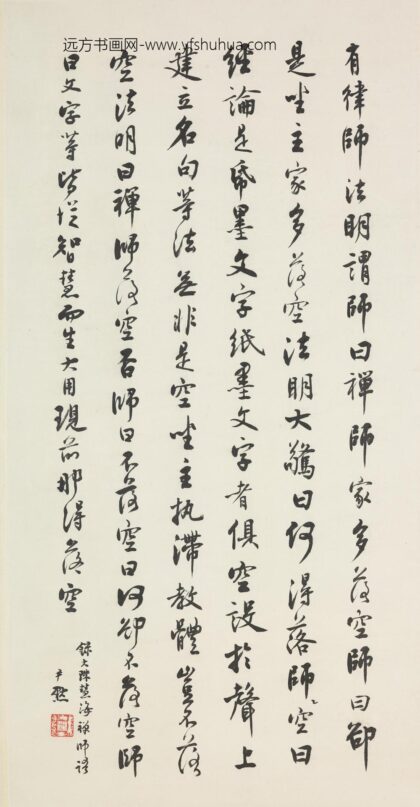 远方书画网-www.yfshuhua.com
有律師法明謂師曰禪師家多落空師曰卻
是坐主家多落空法明大驚曰何得落師空曰
經論是帋墨文字紙墨文字者俱空設於聲上
建立名句等法無非是空坐主執滯教體豈不落
空法明曰禪師落空否師曰不落空曰何卻不落空師
曰文字等皆從智慧而生大用現前那得落空
錄大珠慧海禪師語
尹默